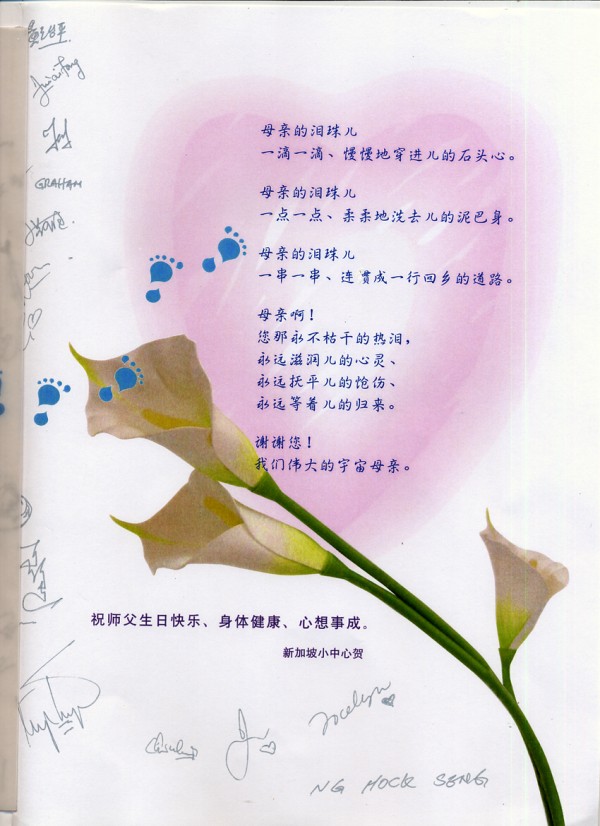 母亲的泪珠儿
一滴一滴、慢慢地穿进儿的石头心。
母亲的泪珠儿
一点一点、柔柔地洗去儿的泥巴身。
母亲的泪珠儿
一串一串、连贯成一行回乡的道路。
母亲啊！
您那永不枯干的热泪，
永远滋润儿的心灵、
永远抚平儿的怆伤、
永远等着儿的归来。
谢谢您！
我们伟大的宇宙母亲。
祝师父生日快乐、身体健康、心想事成。
新加坡小中心贺
GRAHAM
Jocelyn
NG HOCK SENG